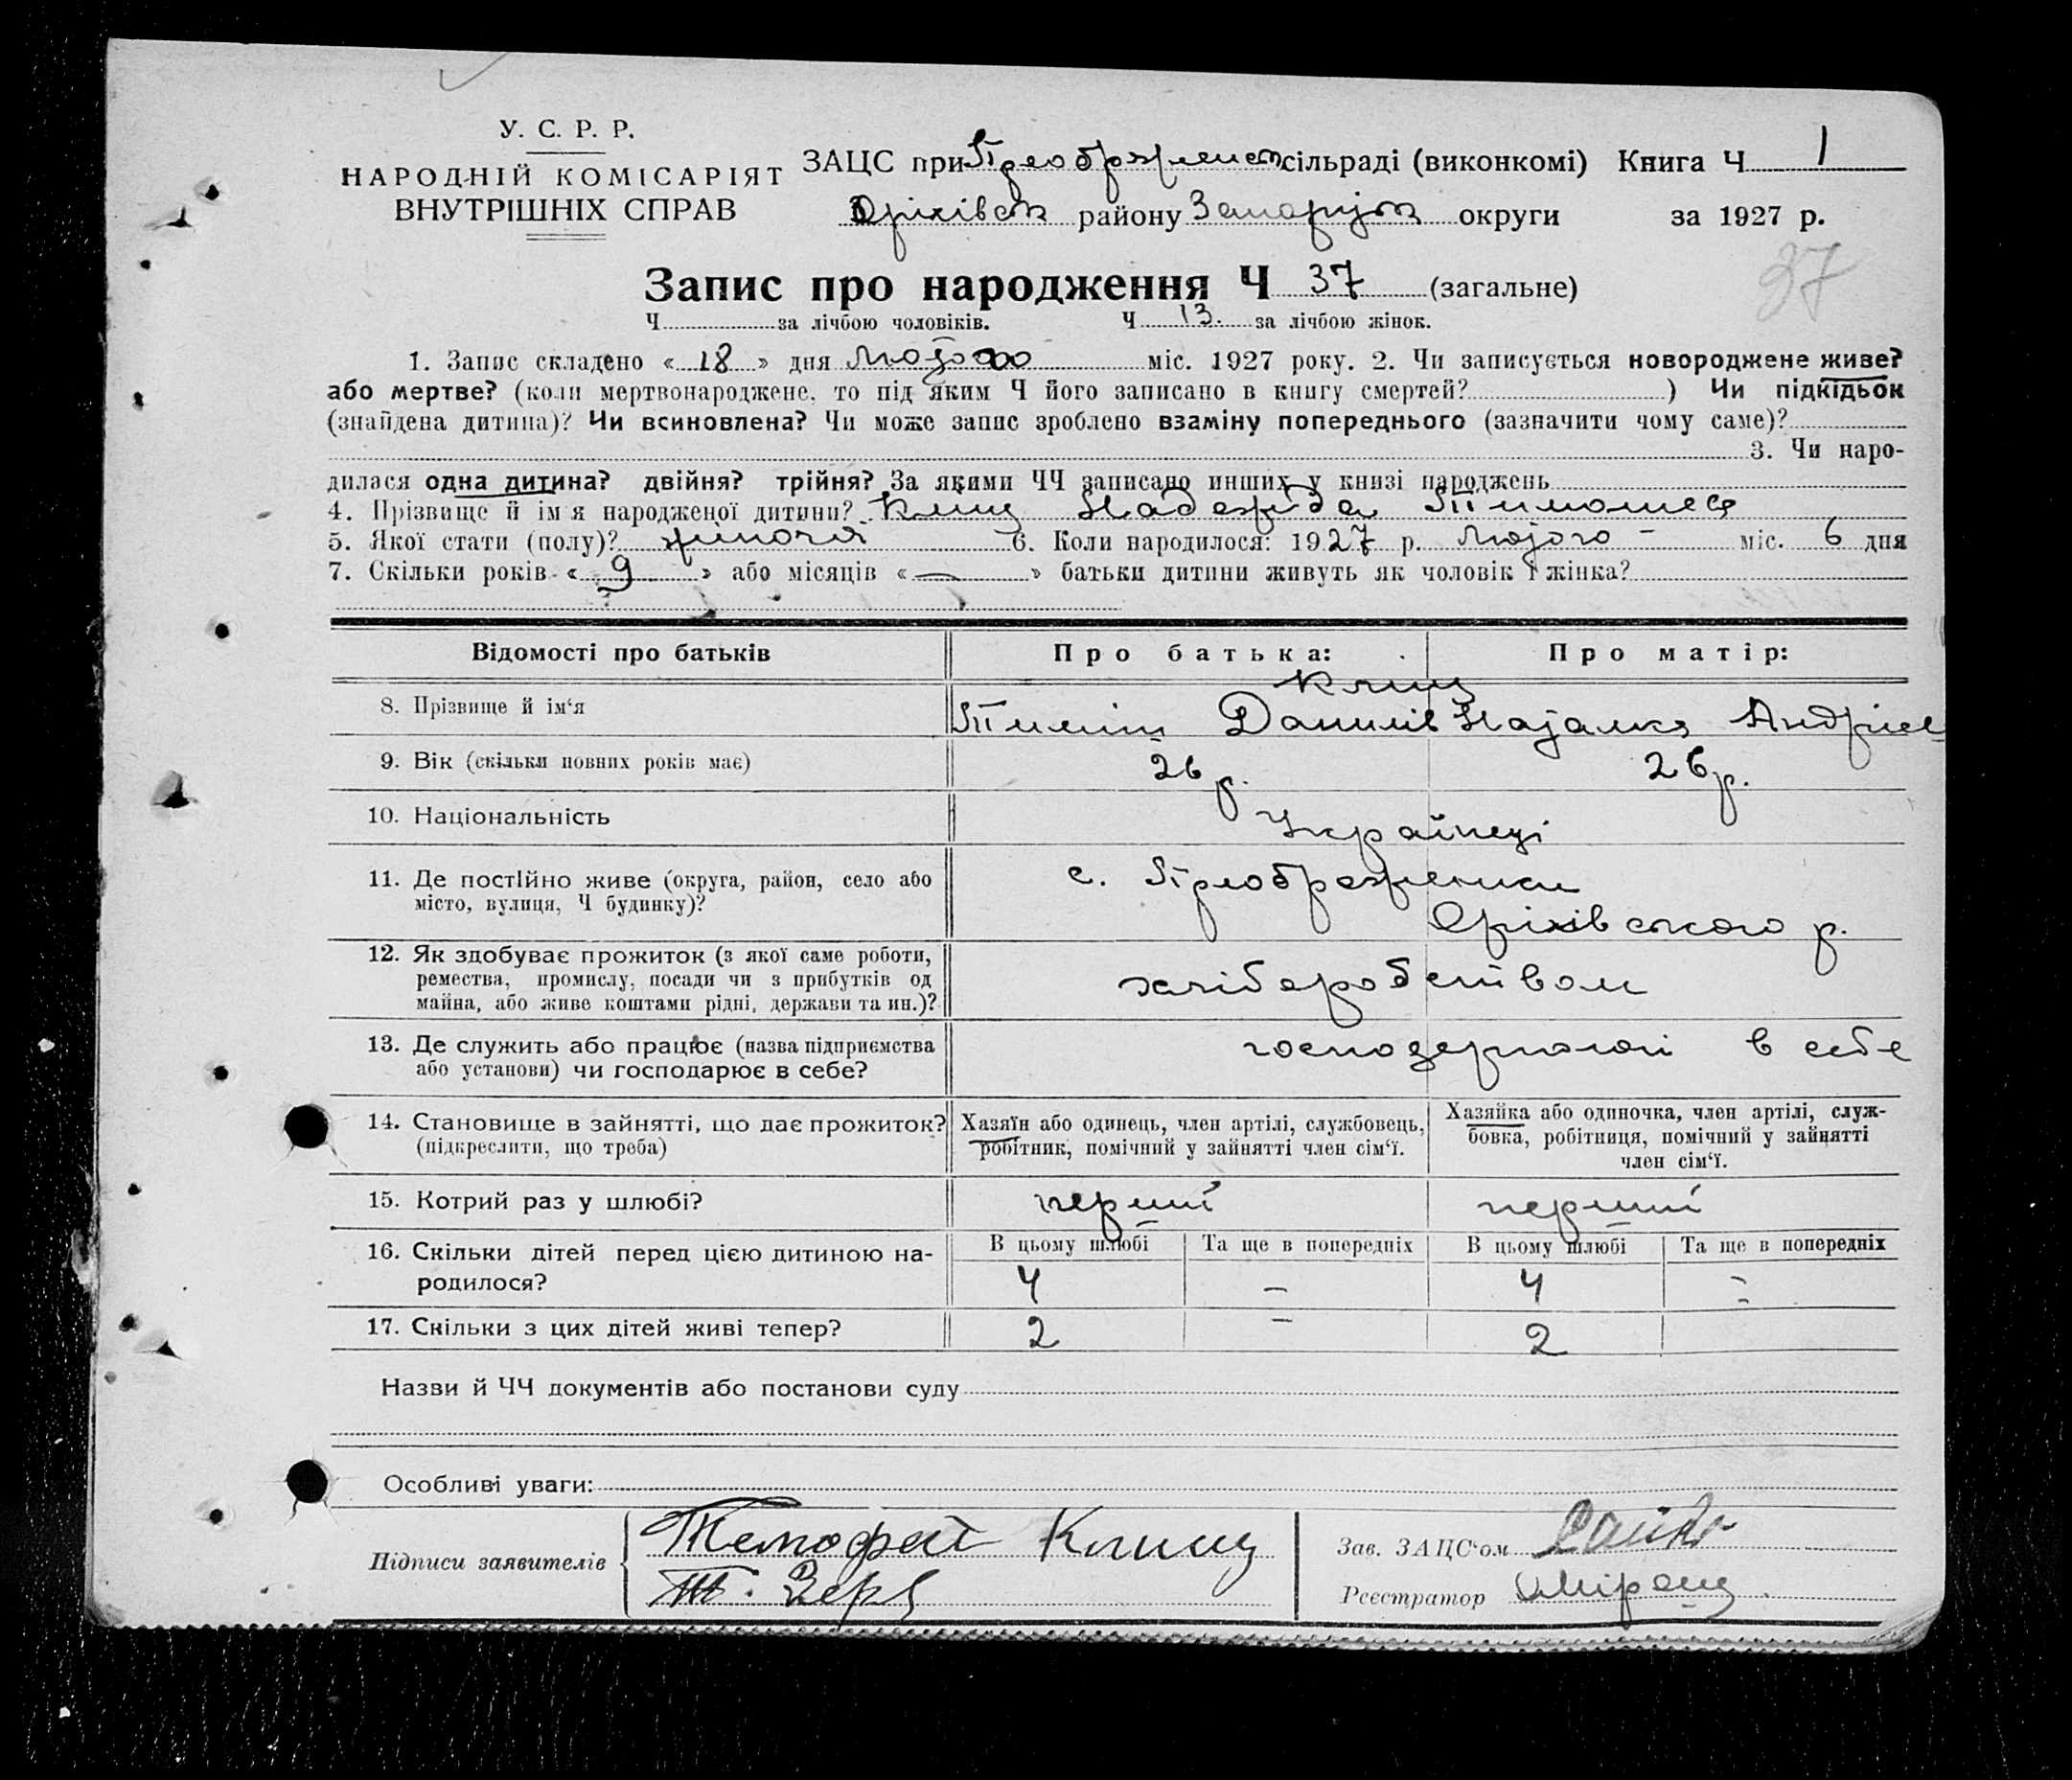 У. С. Р. Р.
НАРОДНІЙ КОМІСАРІЯТ
ВНУТРІШНІХ СПРАВ
ЗАЦС при Преображенск сільраді (виконкомі) Книга Ч 1
Оріхівськ району Запоріжськ округи за 1927 р.
37
Запис про народження Ч 37 (загальне)
Ч за лічбою чоловіків. Ч 13. за лічбою жінок.
1. Запис складено « 18 » дня Лютого міс. 1927 року. 2. Чи записується новороджене живе?
або мертве? (коли мертвонароджене, то під яким Ч його записано в книгу смертей? ) Чи підкідьок
(знайдена дитина)? Чи всиновлена? Чи може запис зроблено взаміну попереднього (зазначити чому саме)?
3. Чи наро-
дилася одна дитина? двійня? трійня? За якими ЧЧ записано инших у книзі народжень
4. Прізвище й ім'я народженої дитини? Клищ Надежда Тимошев
5. Якої стати (полу)? жіноча 6. Коли народилося: 1927 р. Лютого - міс. 6 дня
7. Скільки років « 9 » або місяців « — » батьки дитини живуть як чоловік і жінка?
Відомості про батьків Про батька: Про матір:
Клищ
8. Прізвище й ім'я Тиміш Данилів Наталка Андріев
9. Вік (скільки повних років має) 26 р. 26 р.
10. Національність Українці
11. Де постійно живе (округа, район, село або с. Преображенка
місто, вулиця, Ч будинку)? Оріхівського р.
12. Як здобуває прожиток (з якої саме роботи,
ремества, промислу, посади чи з прибутків од хліборобством
майна, або живе коштами рідні, держави та ин.)?
13. Де служить або працює (назва підприємства
або установи) чи господарює в себе? в себе
14. Становище в зайнятті, що дає прожиток? Хазяїн або одинець, член артілі, службовець, Хазяйка або одиночка, член артілі, служ-
(підкреслити, що треба) робітник, помічний у зайнятті член сім'ї. бовка, робітниця, помічний у зайнятті
член сім'ї.
15. Котрий раз у шлюбі? перший перший
16. Скільки дітей перед цією дитиною на- В цьому шлюбі Та ще в попередніх В цьому шлюбі Та ще в попередніх
родилося? 4 – 4 –
17. Скільки з цих дітей живі тепер? 2 – 2
Назви й ЧЧ документів або постанови суду
Особливі уваги:
Підписи заявителів Темофей Клищ
Зав. ЗАЦС'ом
Реєстратор